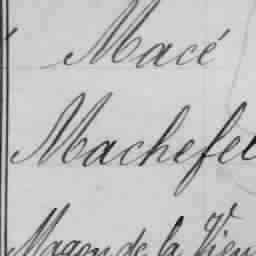 Macé
Machefel
Magon de la Vieu